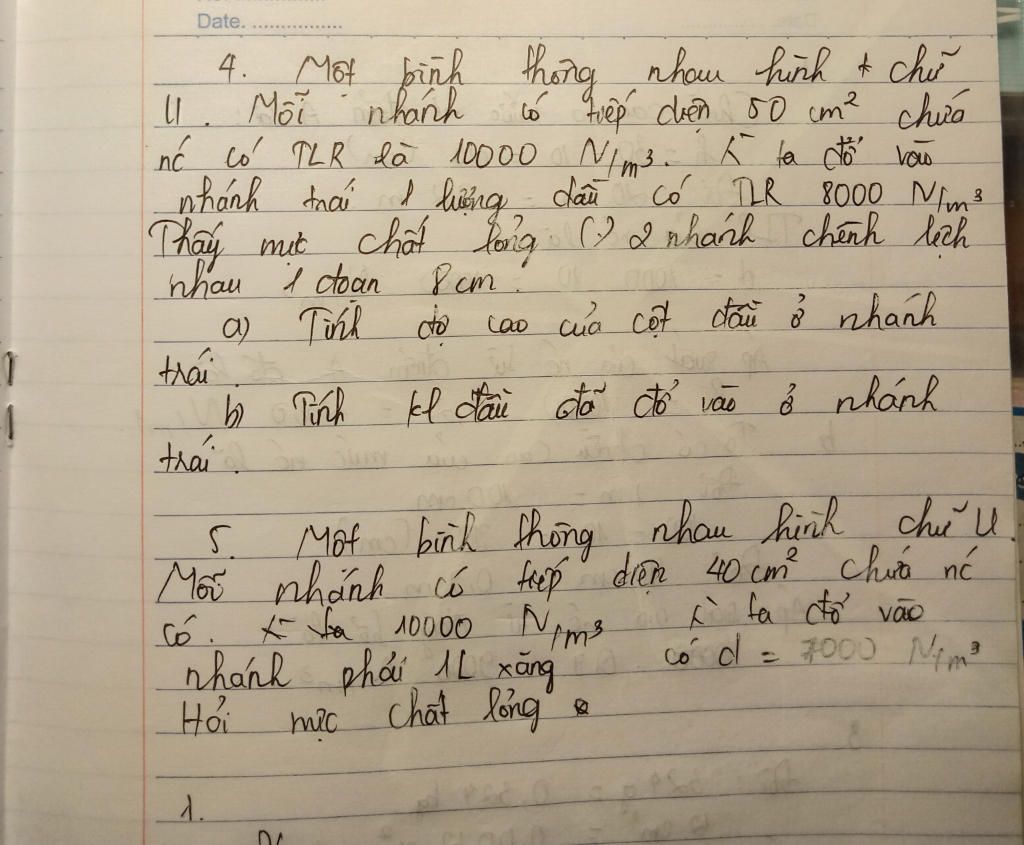 Date. ................
4. Một bình thông nhau hình chữ
U. Mỗi nhánh có tiếp diện 50 cm² chứa
nc có TLR là 10000 N/m³. K ta đổ vào
nhánh trái 1 lượng dầu có TLR 8000 N/m³
Thấy mực chất lỏng (.) 2 nhánh chênh lệch
nhau 1 đoạn 8 cm.
a) Tính độ cao của cột dầu ở nhánh
trái.
b) Tính kl dầu đã đổ vào ở nhánh
trái.
5. Một bình thông nhau hình chữ U.
Mỗi nhánh có tiếp diện 40 cm² chứa nc
có. 10000 N/m³ K ta đổ vào
nhánh phải 1L xăng có d = 7000 N/m³
Hỏi mực chất lỏng
1.